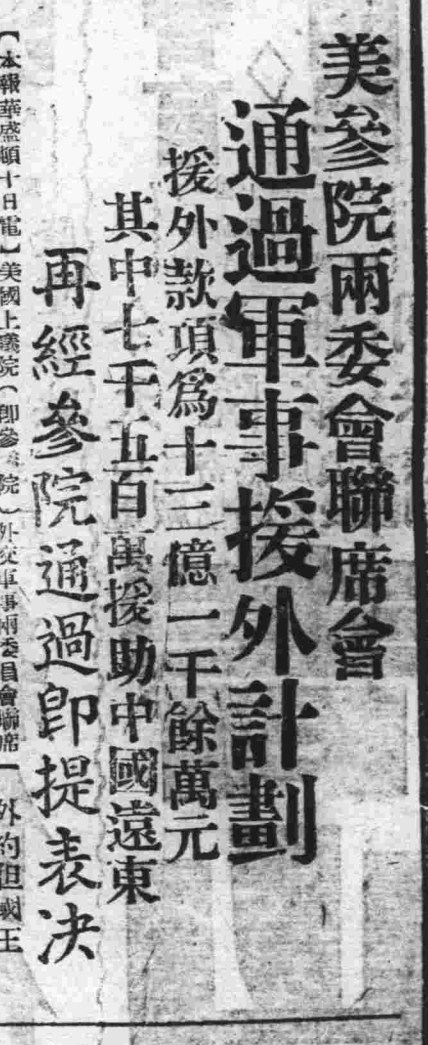 美參院兩委會聯席會
通過軍事援外計劃
援外款項爲十三億一千餘萬元
其中七千五百萬援助中國遠東
再經參院通過卽提表决
【本報華盛頓十日電】美國上議院（卽參議院）外交軍事兩委員會聯席
外約但國王